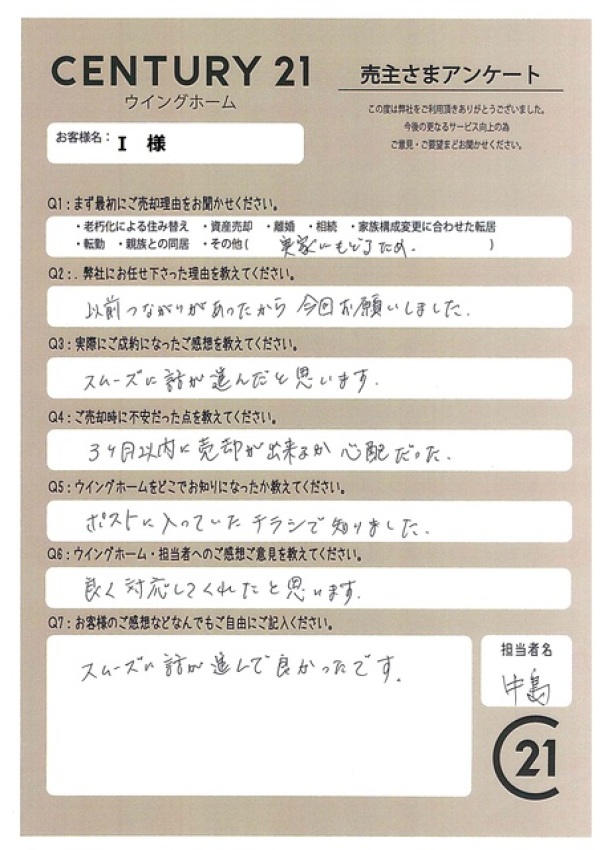 CENTURY 21
ウイングホーム
売主さまアンケート
この度は弊社をご利用頂きありがとうございました。
今後の更なるサービス向上の為
ご意見・ご要望などお聞かせください。
お客様名： I 様
Q1：まず最初にご売却理由をお聞かせください。
・老朽化による住み替え ・資産売却 ・離婚 ・相続 ・家族構成変更に合わせた転居
・転勤 ・親族との同居 ・その他( 実家にもどるため. )
Q2：. 弊社にお任せ下さった理由を教えてください。
以前つながりがあったから 今回お願いしました.
Q3：実際にご成約になったご感想を教えてください。
スムーズに話が進んだと思います.
Q4：ご売却時に不安だった点を教えてください。
3ヶ月以内に売却が出来るか 心配だった.
Q5：ウイングホームをどこでお知りになったか教えてください。
ポストに入っていたチラシで知りました.
Q6：ウイングホーム・担当者へのご感想ご意見を教えてください。
良く対応してくれたと思います.
Q7：お客様のご感想などなんでもご自由にご記入ください。
スムーズに話が進んで良かったです.
担当者名
中島
C21